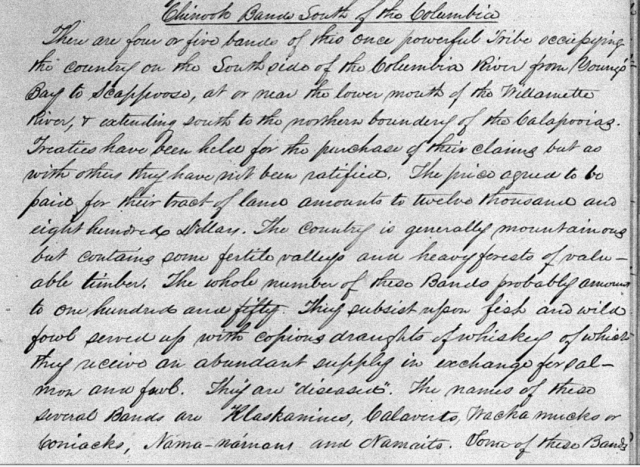 Chinook Bands South of the Columbia
There are four or five bands of this once powerful Tribe occupying
the country on the South side of the Columbia River from Young's
Bay to Scappoose, at or near the lower mouth of the Willamette
River, & extending south to the northern boundery of the Calapooias.
Treaties have been held for the purchase of their claims but as
with others they have not been ratified. The price agreed to be
paid for their tract of land amounts to twelve thousand and
eight hundred Dollars. The country is generally mountainous
but contains some fertile valleys and heavy forests of valu-
able timber. The whole number of these Bands probably amount
to one hundred and fifty. They subsist upon fish and wild
fowl served up with copious draughts of whiskey of which
they receive an abundant supply in exchange for sal-
mon and fowl. They are "diseased". The names of these
several Bands are Klaskanines, Calaverts, Wacka mucks or
Coniacks, Nama-námans and Namaits. Some of these Bands